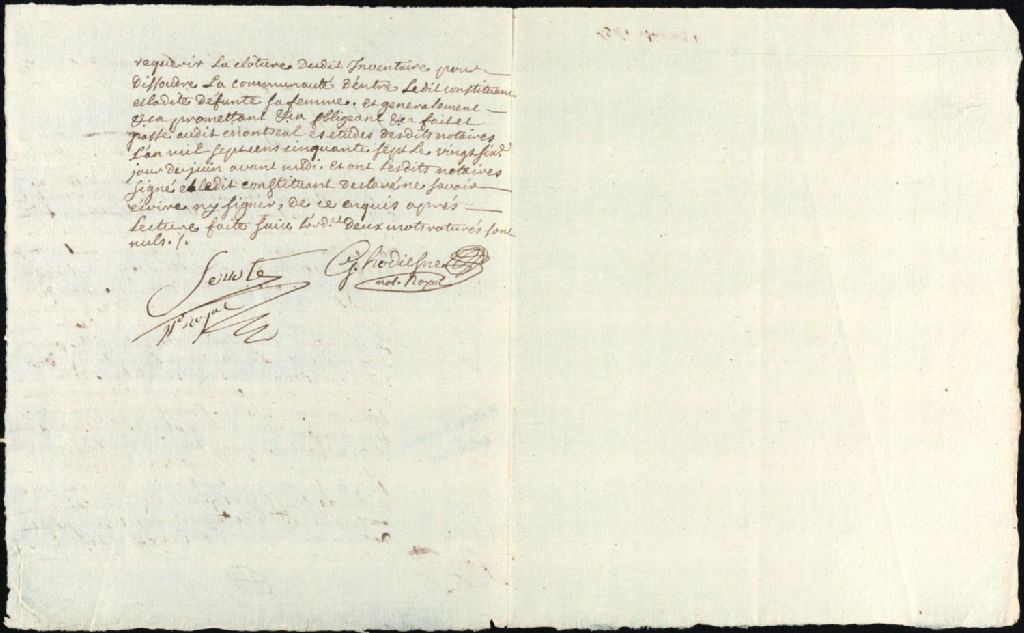 requerir La cloture Dudit Inventaire pour
Dissoudre La communauté D'entre Ledit constituant
et ladite défunte sa femme. Et generalement
&ca promettant &ca obligeant &ca fait et
passé audit montreal es études desdits notaires
L'an mil sept cens cinquante sept Le vingt six.e
jour de juin avant midi. Et ont lesdits notaires
signé et ledit constituant Declaré ne savoir
ecrire ny signer, de ce enquis après
Lecture faite suiv.t l'ord.ce Deux mots raturés sont
nuls. /.
G. hodiesne
not. Royal